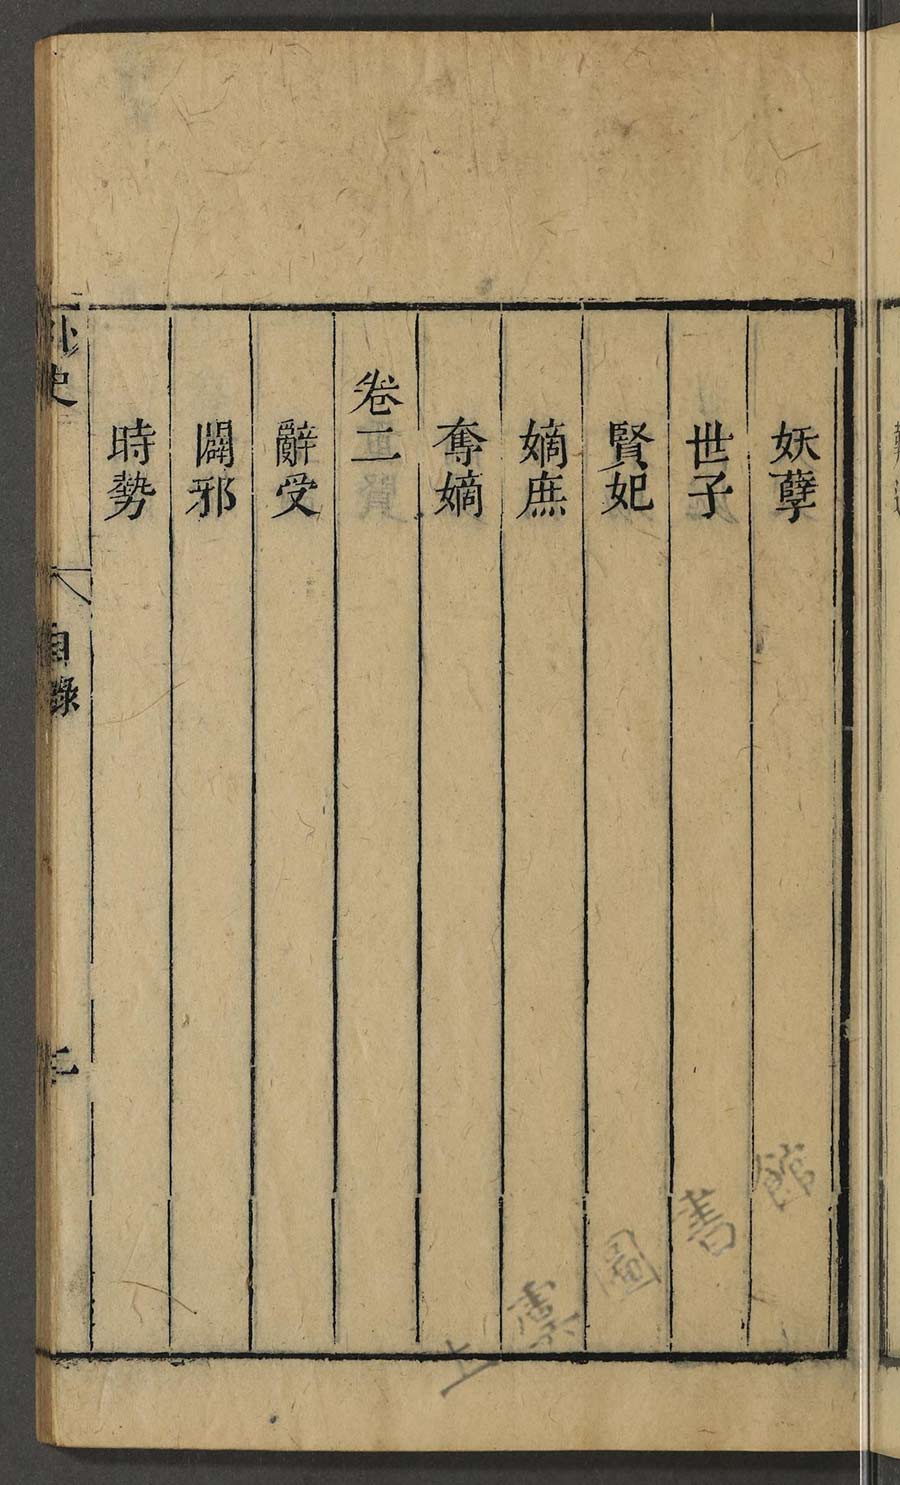 妖孽
世子
賢妃
嫡庶
奪嫡
卷二
辭受
闢邪
時勢
外史
目錄
二
上虞圖書館